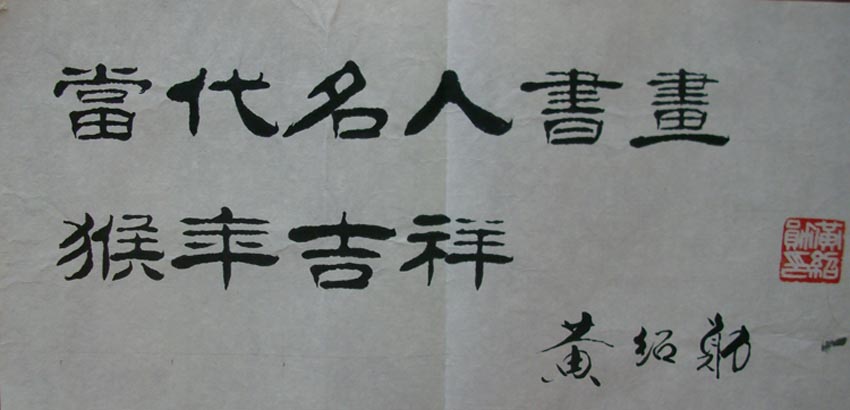 當代名人書畫
猴年吉祥
黄紹勛
黃紹勛印